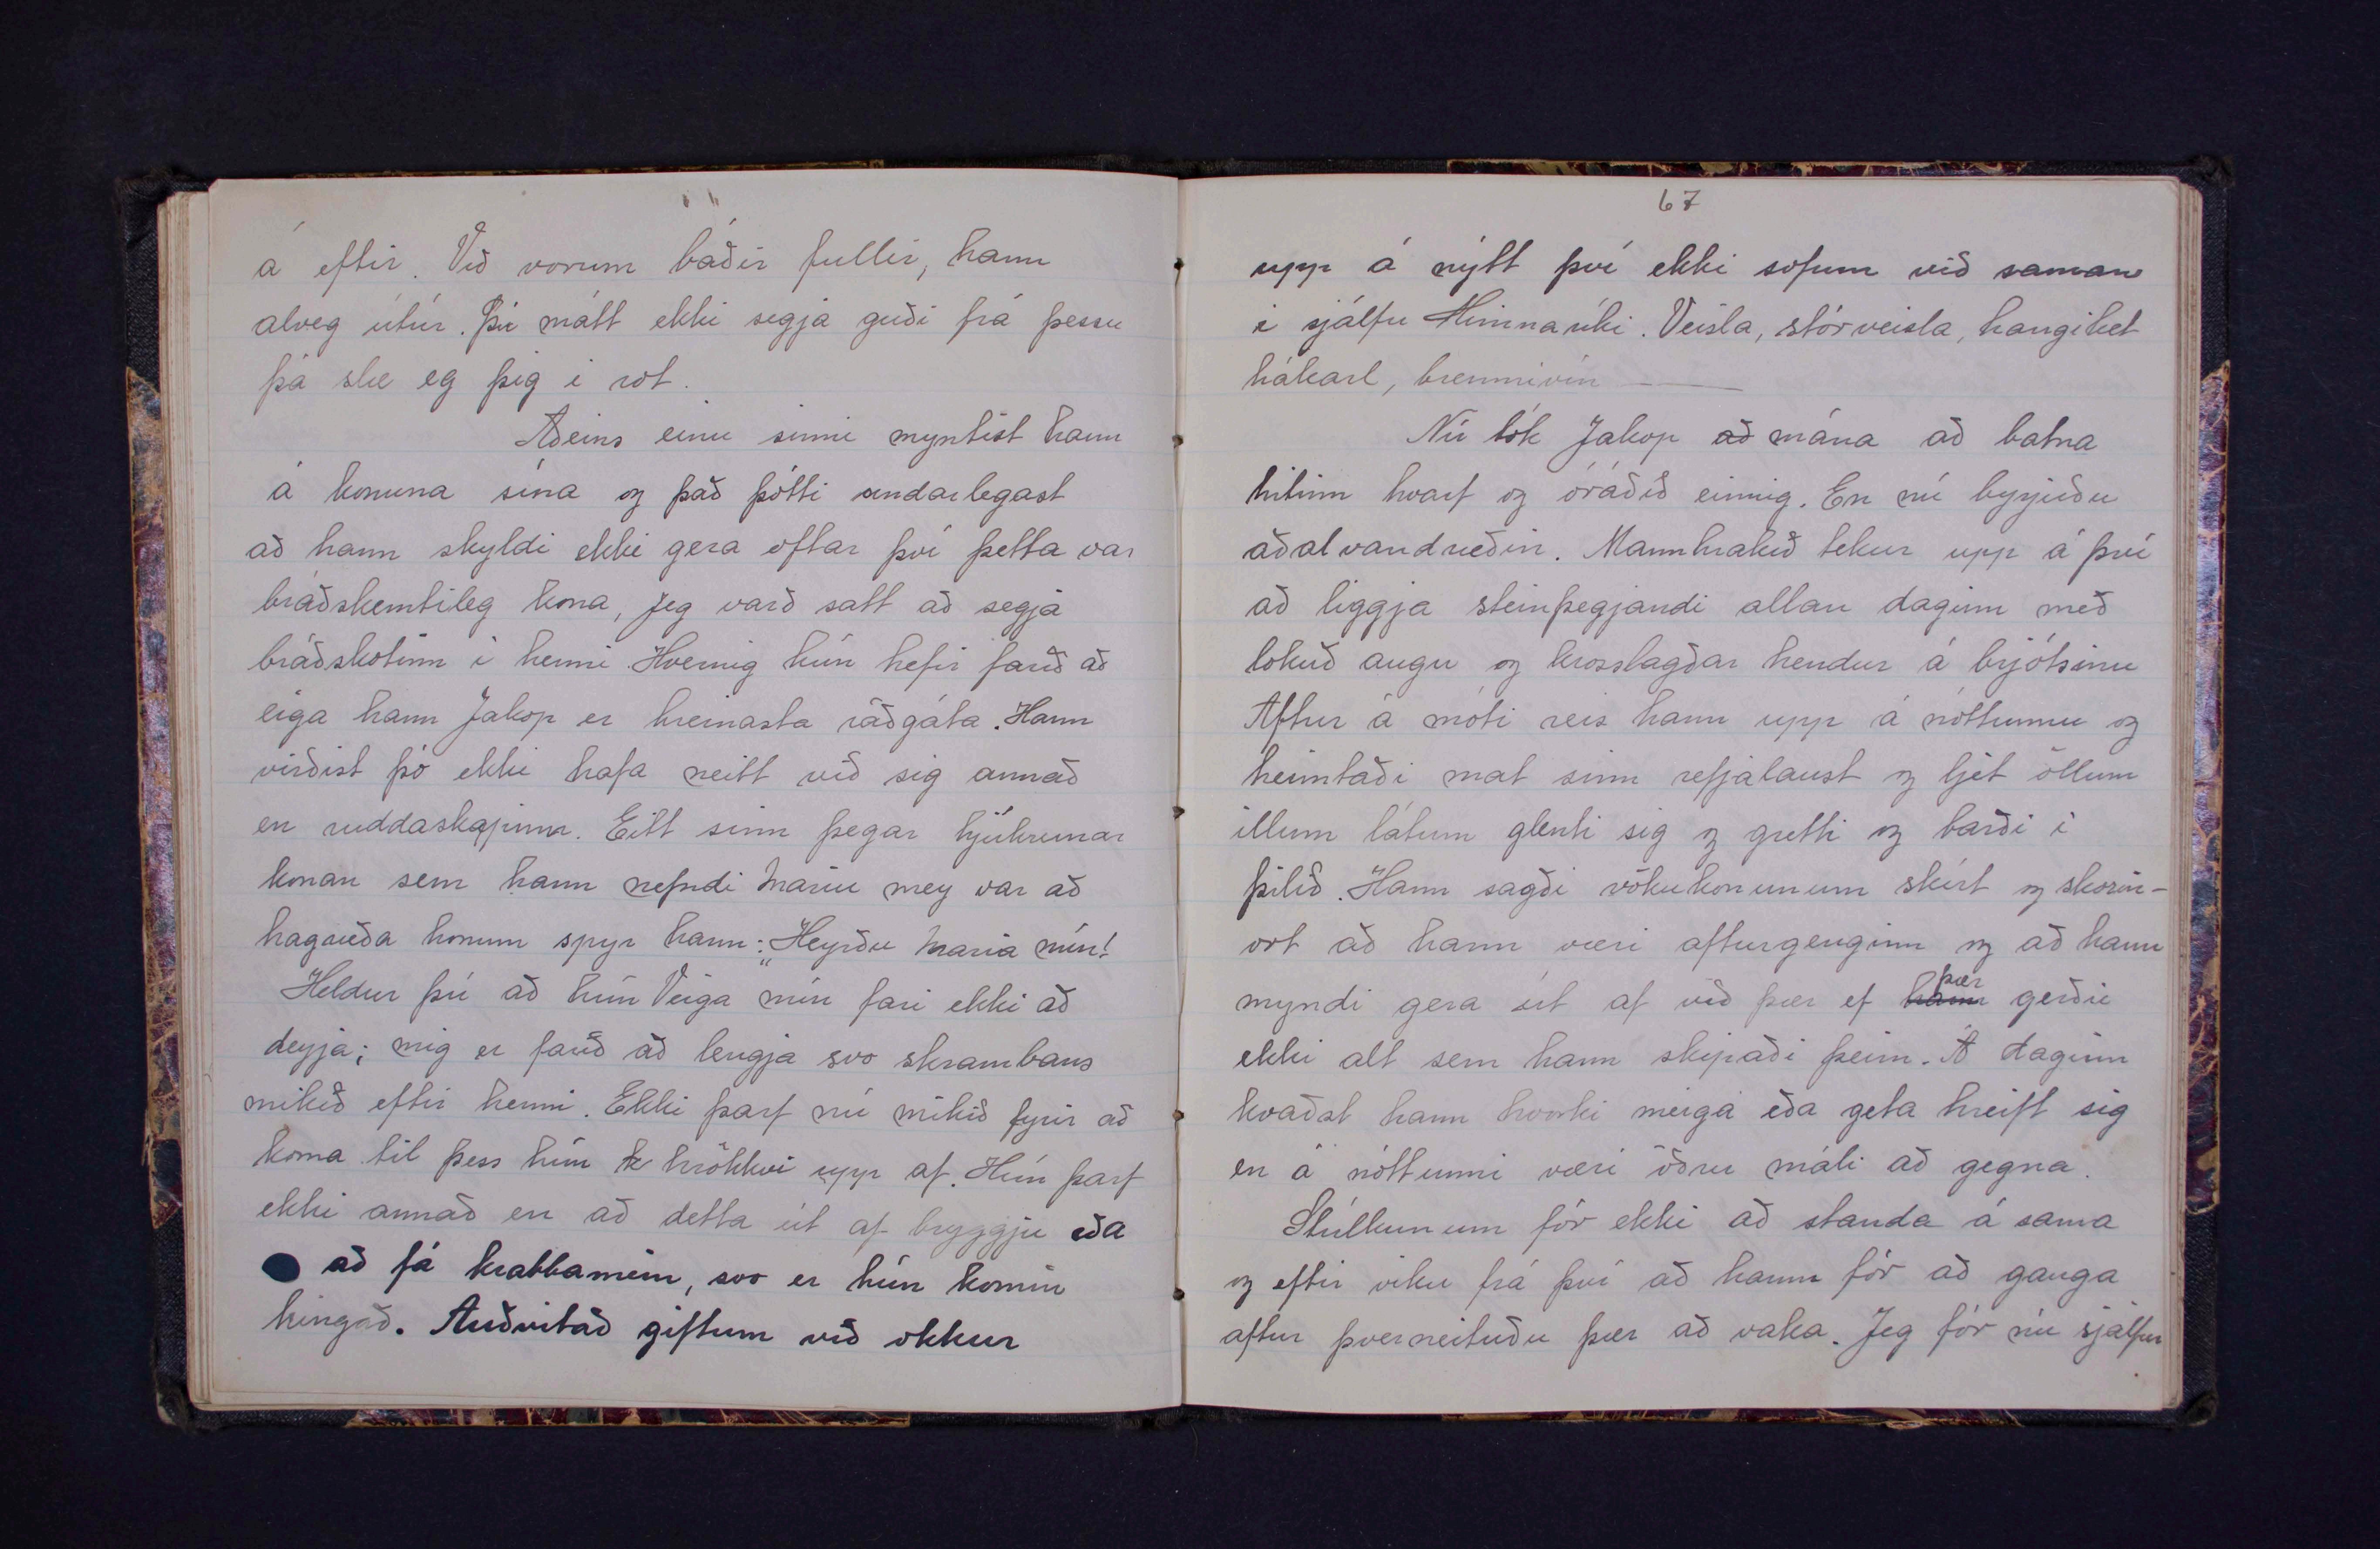 á eftir. Við vorum báðir fullir, hann
alveg útúr. Þú mátt ekki segja guði frá þessu
þá slæ eg þig í rot.
Aðeins einu sinni myntist hann
á konuna sína og það þótti undarlegast
að hann skyldi ekki gera oftar því þetta var
bráðskemtileg kona, jeg varð satt að segja
bráðskotinn í henni. Hvernig hún hefir farið að
eiga hann Jakop er hreinasta ráðgáta. Hann
virðist þó ekki hafa neitt við sig annað
en ruddaskapinn. Eitt sinn þegar hjúkrunar
konan sem hann nefndi Maríu mey var að
hagræða honum spyr hann: „Heyrðu María mín!
Heldur þú að hún Veiga mín fari ekki að
deyja; mig er farið að lengja svo skrambans
mikið eftir henni. Ekki þarf nú mikið fyrir að
koma til þess hún k hrökkvi upp af. Hún þarf
ekki annað en að detta út af bryggju eða
að fá krabbamein, svo er hún komin
hingað. Auðvitað giftum við okkur
67
upp á nýtt því ekki sofum við saman
í sjálfu Himnaríki. Veisla, stórveisla, hangiket
hákarl, brennivín ———
Nú tók Jakop að mána að batna
hitinn hvarf og óráðið einnig. En nú byrjuðu
aðalvandræðin. Mannhrakið tekur upp á því
að liggja steinþegjandi allan daginn með
lokuð augu og krosslagðar hendur á brjótsinu
Aftur á móti reis hann upp á nóttunnu og
heimtaði mat sinn refjalaust og ljét öllum
illum látum glenti sig og gretti og barði í
þilið. Hann sagði vökukonunum skírt og skorin-
ort að hann væri afturgenginn og að hann
myndi gera út af við þær ef hann þær gerðu
ekki alt sem hann skipaði þeim. Á daginn
kvaðst hann hvorki meiga eða geta hreift sig
en á nóttunni væri öðru máli að gegna.
Stúlkunum fór ekki að standa á sama
og eftir viku frá því að hann fór að ganga
aftur þverneituðu þær að vaka. Jeg fór nú sjálfur